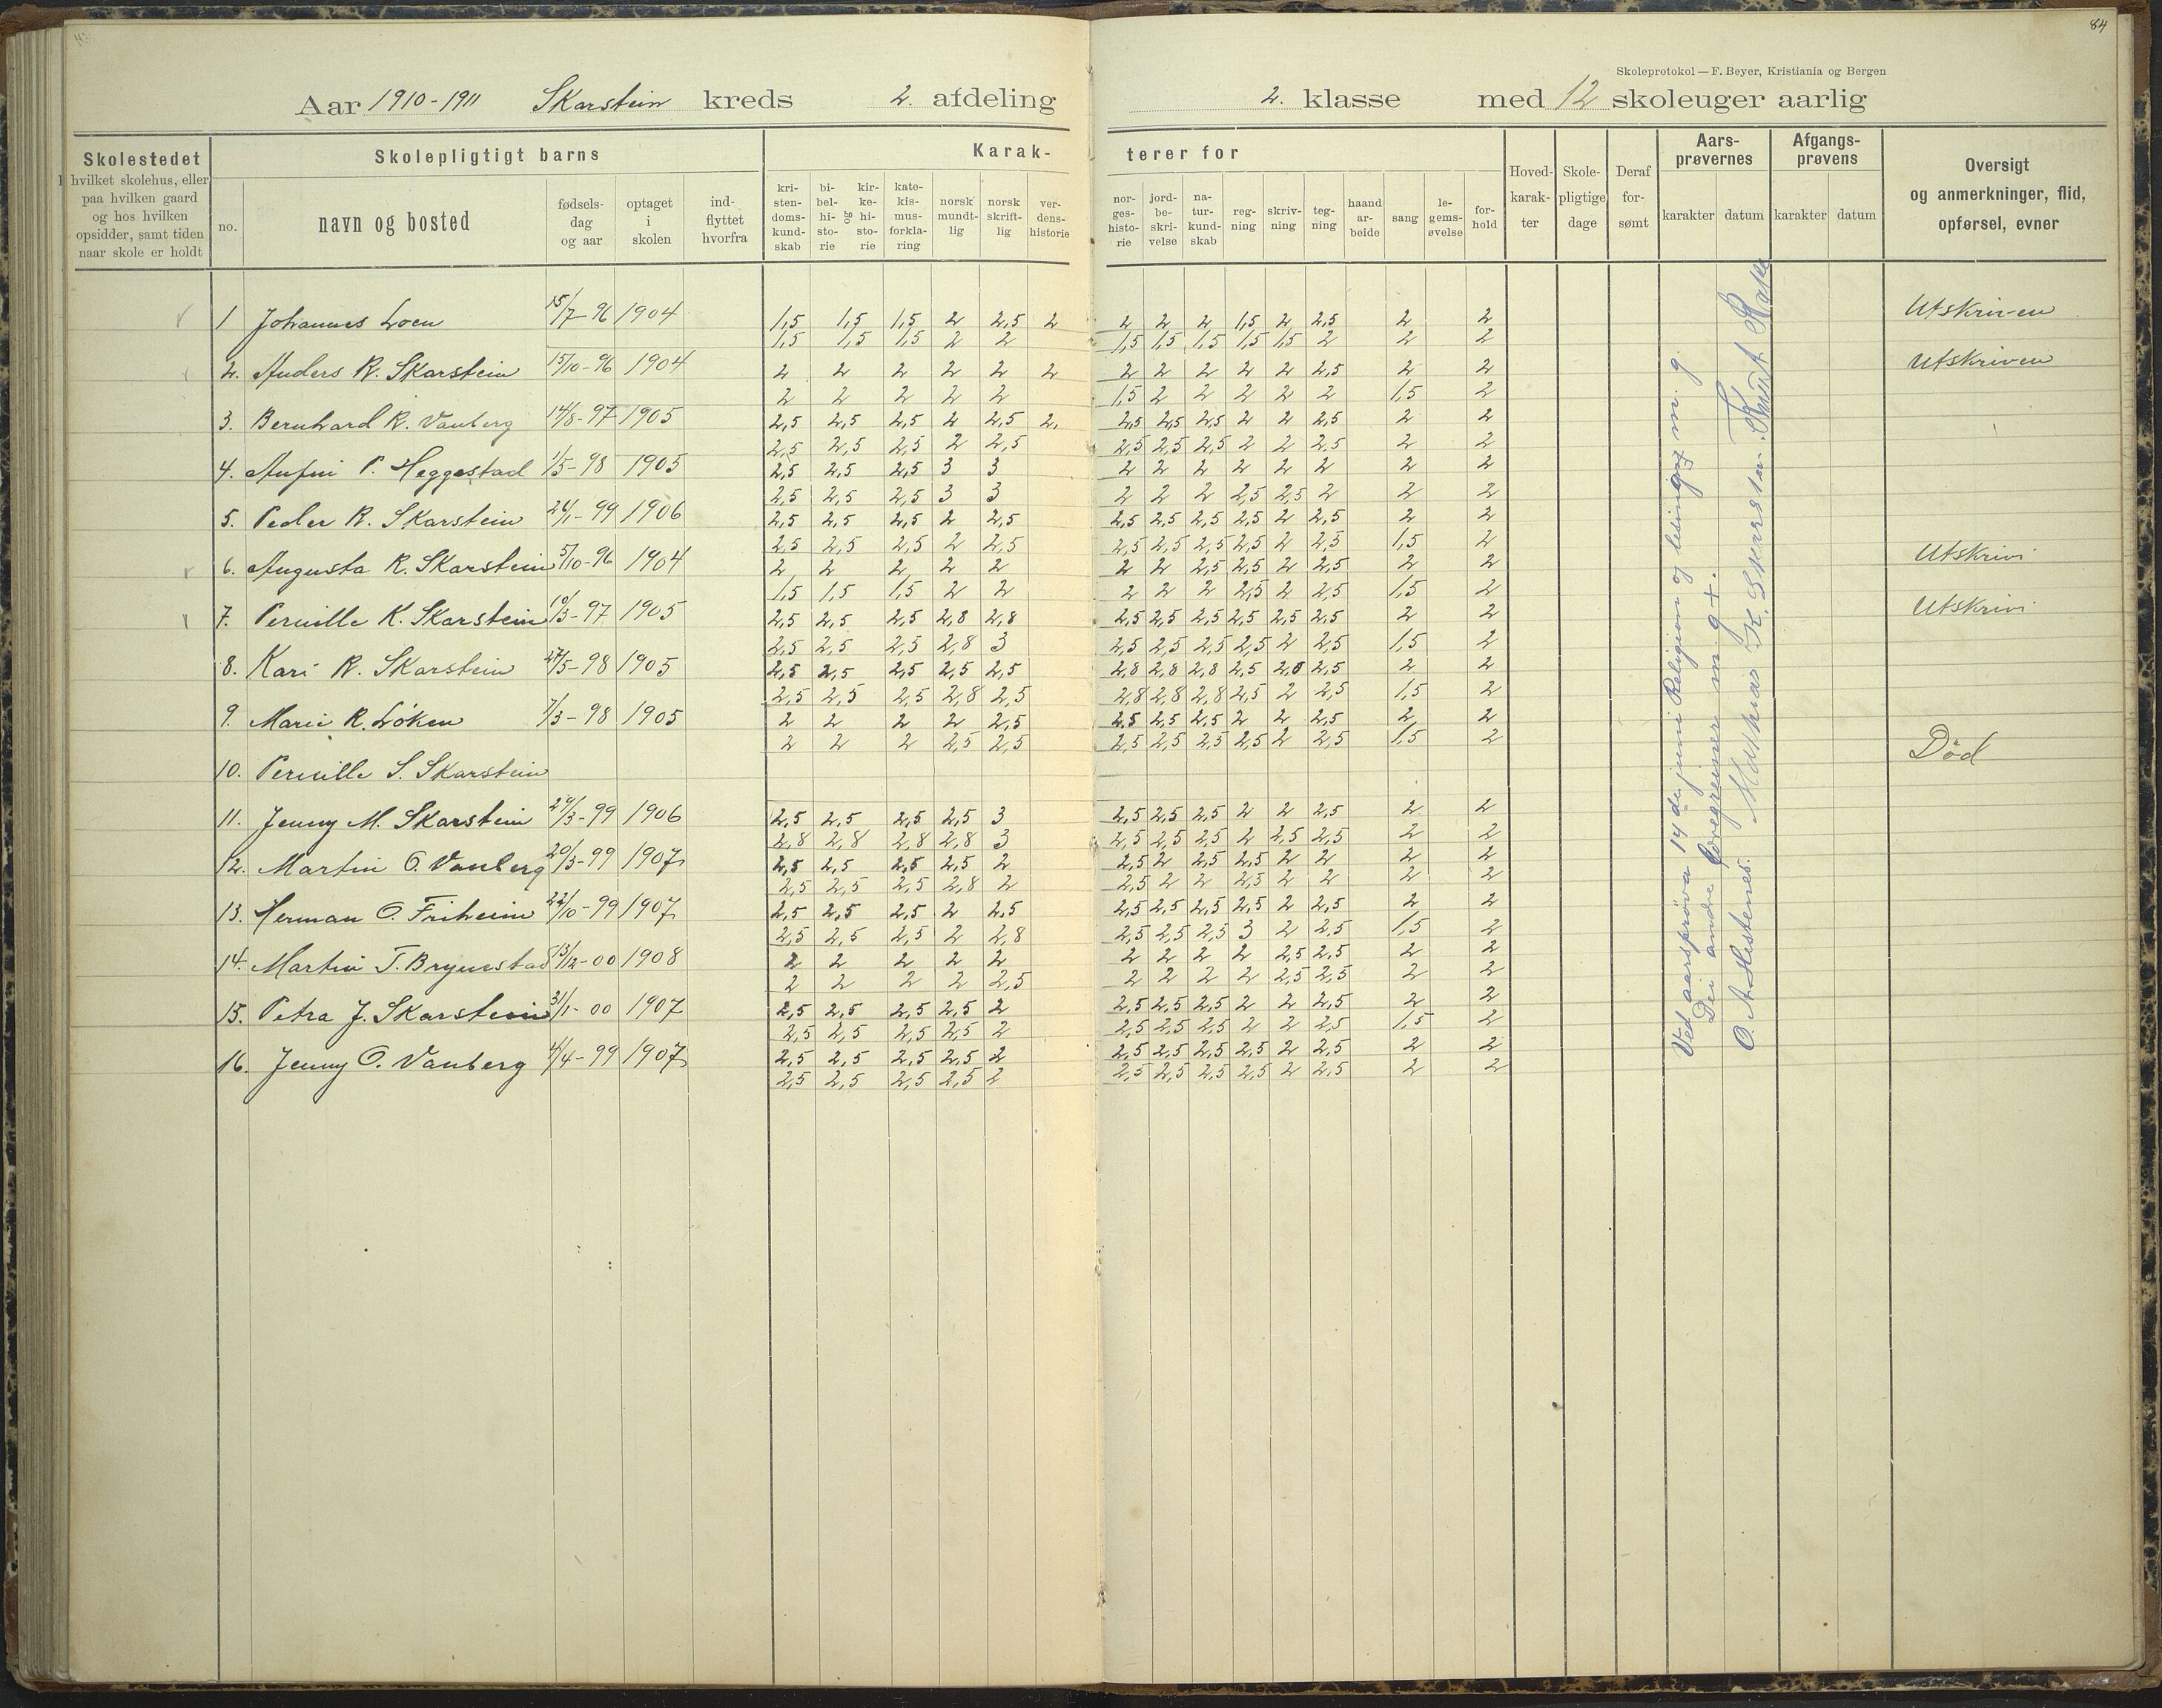 84
Skoleprotokol — F. Beyer, Kristiania og Bergen
Aar 1910-1911 Skarstein kreds 2. afdeling 2. klasse med 12 skoleuger aarlig
Skolestedet
hvilket skolehus, eller
paa hvilken gaard
og hos hvilken
opsidder, samt tiden
naar skole er holdt
Skolepligtigt barns
no. navn og bosted
fødsels-
dag
og aar
optaget
i
skolen
ind-
flyttet
hvorfra
Karak-
terer for
kri-
sten-
doms-
kund-
skab
bi-
bel-
hi-
sto-
rie
og
kir-
ke-
hi-
sto-
rie
kate-
kis-
mus-
forkla-
ring
norsk
mundt-
lig
norsk
skrift-
lig
ver-
dens-
historie
nor-
ges-
histo-
rie
jord-
be-
skri-
velse
na-
tur-
kund-
skab
reg-
ning
skriv-
ning
teg-
ning
haand
ar-
beide
sang
le-
gems-
øvelse
for-
hold
Hoved-
karak-
ter
Skole-
pligtige
dage
Deraf
for-
sømt
Aars-
prøvernes
karakter datum
Afgangs-
prøvens
karakter datum
Oversigt
og anmerkninger, flid,
opførsel, evner
1 Johannes Loen 15/7-96 1904 1,5 1,5 1,5 2 2,5 2 2 2 2 1,5 2 2,5 2 2 Utskriven
1,5 1,5 1,5 2 2 1,5 1,5 1,5 1,5 1,5 2 2 2
2. Anders R. Skarstein 15/10-96 1904 2 2 2 2 2 2 2 2 2 2 2 2,5 2 2 Utskriven
2 2 2 2 2 1,5 2 2 2 2 2 1,5 2
3. Bernhard R. Vanberg 14/8-97 1905 2,5 2,5 2,5 2 2,5 2. 2,5 2,5 2,5 2 2 2,5 2 2
2,5 2,5 2,5 2 2,5 2,5 2,5 2,5 2 2 2,5 2 2
4. Anfin P. Heggestad 1/5-98 1905 2,5 2,5 2,5 3 3 2 2 2 2 2 2 2 2
2,5 2,5 2,5 3 3 2 2 2 2,5 2,5 2 2 2
5. Peder R. Skarstein 26/1-99 1906 2,5 2,5 2,5 2 2,5 2,5 2,5 2,5 2,5 2 2,5 2 2
2,5 2,5 2,5 2 2,5 2,5 2,5 2,5 2,5 2 2,5 1,5 2
6. Augusta R. Skarstein 5/10-96 1904 2 2 2 2 2 2 2 2,5 2,5 2 2,5 2 2 Utskrivi
1,5 1,5 1,5 2 2 2 2 2 2,5 2 2,5 1,5 2
7. Pernille K. Skarstein 10/3-97 1905 2,5 2,5 2,5 2,8 2,8 2,5 2,5 2,5 2,5 2,5 2,5 2 2 Utskrivi
2,5 2,5 2,5 2,8 3 2,5 2,5 2,5 2,5 2 2,5 1,5 2
8. Kari R. Skarstein 27/5-98 1905 2,5 2,5 2,5 2,5 2,5 2,8 2,8 2,8 2,5 2,8 2,5 2 2
2,5 2,5 2,5 2,8 2,5 2,8 2,8 2,8 2,5 2 2,5 1,5 2
9. Marie R. Løken 7/3-98 1905 2 2 2 2 2,5 2,5 2,5 2,5 2 2 2,5 2 2
2 2 2 2,5 2,5 2,5 2,5 2,5 2,5 2 2,5 1,5 2
10. Pernille S. Skarstein Død
11. Jenny M. Skarstein 29/3-99 1906 2,5 2,5 2,5 2,5 3 2,5 2,5 2,5 2 2 2,5 2 2
2,8 2,8 2,8 2,8 3 2,5 2,5 2,5 2 2,5 2,5 2 2
12. Martin O. Vanberg 20/3-99 1907 2,5 2,5 2,5 2,5 2 2,5 2 2,5 2,5 2 2 2 2
2,5 2,5 2,5 2,8 2 2,5 2 2 2,5 2 2 2 2
13. Herman O. Friheim 22/10-99 1907 2,5 2,5 2,5 2 2,5 2,5 2,5 2,5 2,5 2 2,5 2 2
2,5 2,5 2,5 2 2,8 2,5 2,5 2,5 3 2 2,5 1,5 2
14. Martin T. Brynestad 13/12-00 1908 2 2 2 2 2 2 2 2 2 2,5 2,5 2 2
2 2 2 2 2,5 2 2 2 2 2,5 2,5 2 2
15. Petra J. Skarstein 31/1-00 1907 2,5 2,5 2,5 2,5 2 2,5 2,5 2,5 2 2 2,5 2 2
2,5 2,5 2,5 2,5 2 2,5 2,5 2,5 2 2 2,5 1,5 2
16. Jenny O. Vanberg 4/4-99 1907 2,5 2,5 2,5 2,5 2 2,5 2,5 2,5 2,5 2 2,5 2 2
2,5 2,5 2,5 2,5 2 2,5 2,5 2,5 2,5 2 2,5 2 2
Ved aarsprøva 14de juni Religion og lesing m. g.
Dei andre foregreiner m. g +.
O. A. Hestenes. Mathias K. Skarsten. Knut